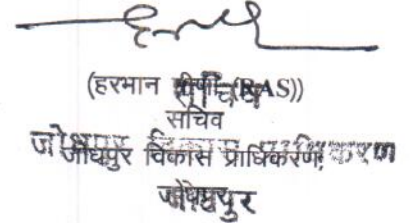 (हरभान मीणा (RAS))
सचिव
जोधपुर विकास प्राधिकरण
जोधपुर